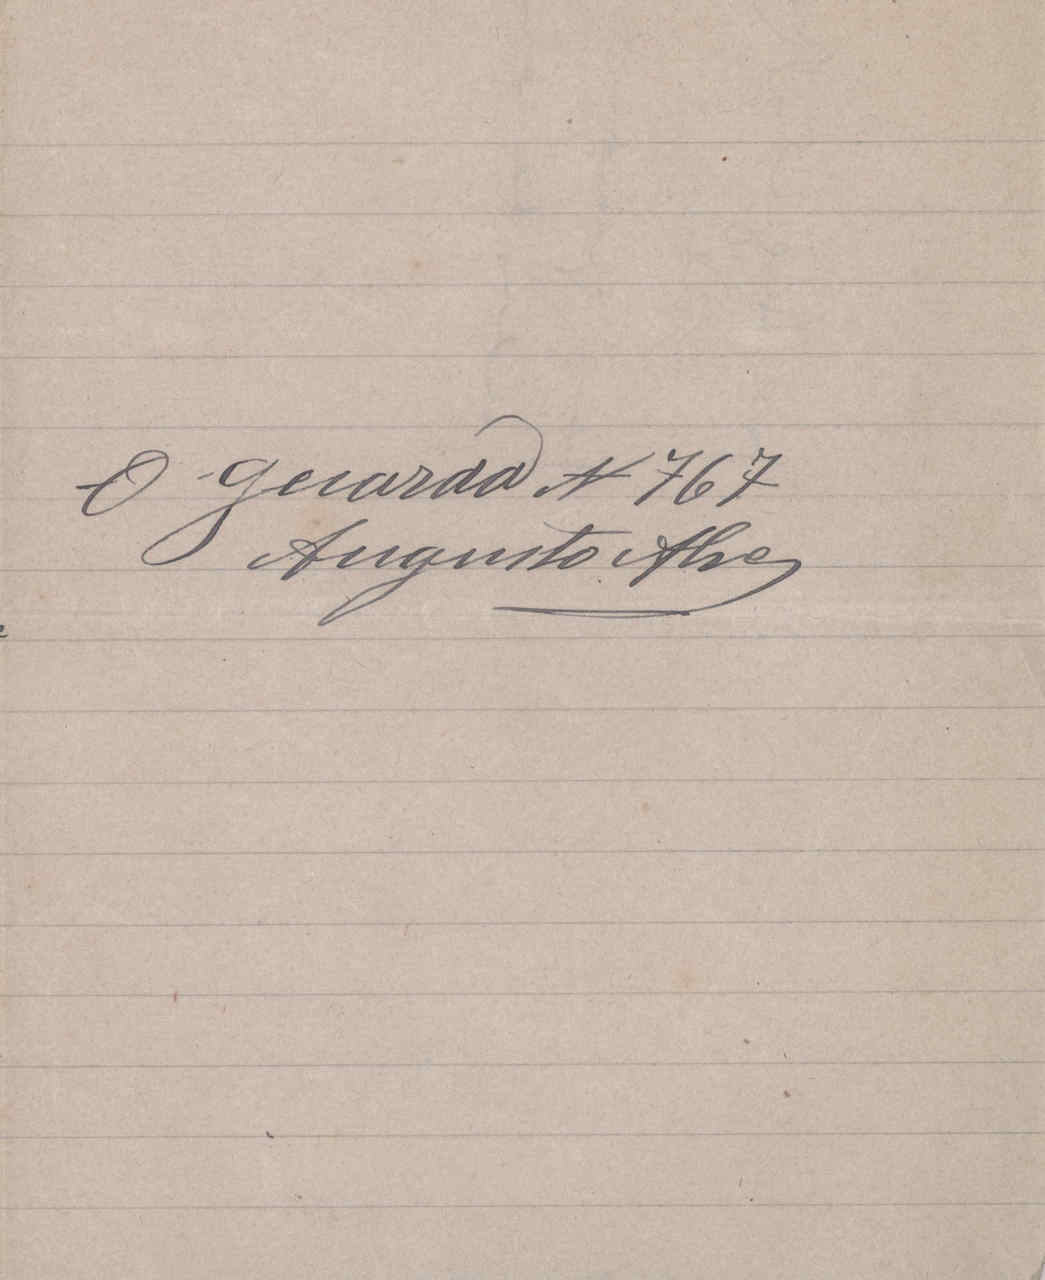 O guarda N 767
Augusto Alves